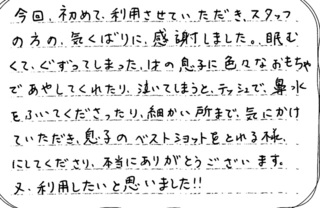 今回、初めて、利用させていただき、スタッフ
の方の、気くばりに、感謝しました。眠む
くて、ぐずってしまった、1才の息子に色々なおもちゃ
であやしてくれたり、泣いてしまうと、ティッシュで、鼻水
をふいてくださったり、細かい所まで、気にかけ
ていただき、息子の ベストショットをとれる様、
にしてくださり、本当にありがとうございます。
又、利用したいと思いました!!